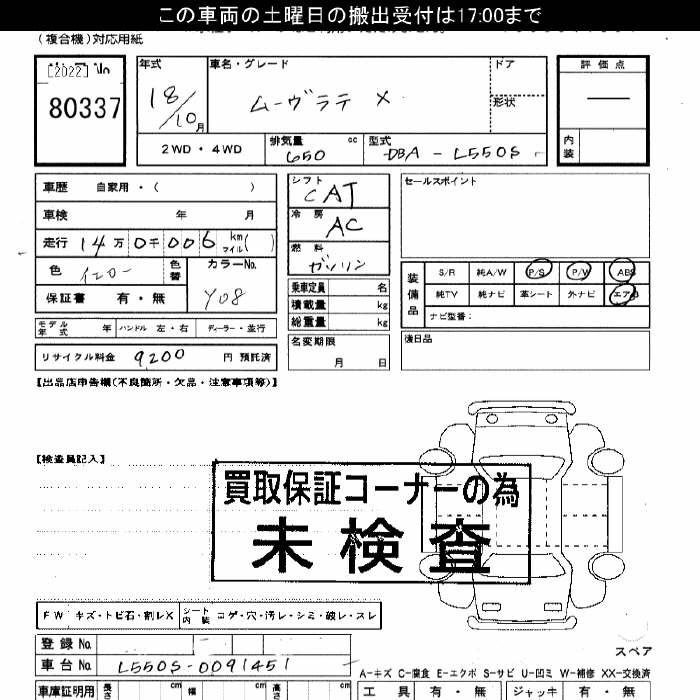 この車両の土曜日の搬出受付は17:00まで
(複合機)対応用紙
[2022] No
80337
年式
車名・グレード
ドア
形状
評価点
18/10月
ムーヴラテ X
―
内装
2WD・4WD
排気量 650 cc
型式 DBA-L550S
車歴 自家用・( )
車検 年 月
走行 14万0千006 km マイル( )
色 イエロー
色替
カラーNo. Y08
保証書 有・無
モデル年式 年 ハンドル 左・右 ディーラー・並行
リサイクル料金 9200 円 預託済
シフト CAT
冷房 AC
燃料 ガソリン
乗車定員 名
積載量 kg
総重量 kg
名変期限
月 日
セールスポイント
装備品
S/R 純A/W P/S P/W ABS
純TV 純ナビ 革シート 外ナビ エアB
ナビ型番:
後日品
【出品店申告欄(不良箇所・欠品・注意事項等)】
【検査員記入】
買取保証コーナーの為
未検査
FW キズ・トビ石・割レX シート内装 コゲ・穴・汚レ・シミ・破レ・スレ
登録No.
車台No. L550S-0091451
スペア
A-キズ C-腐食 E-エクボ S-サビ U-凹ミ W-補修 XX-交換済
車庫証明用 長さ cm 幅 cm 高さ cm
工具 有・無 ジャッキ 有・無